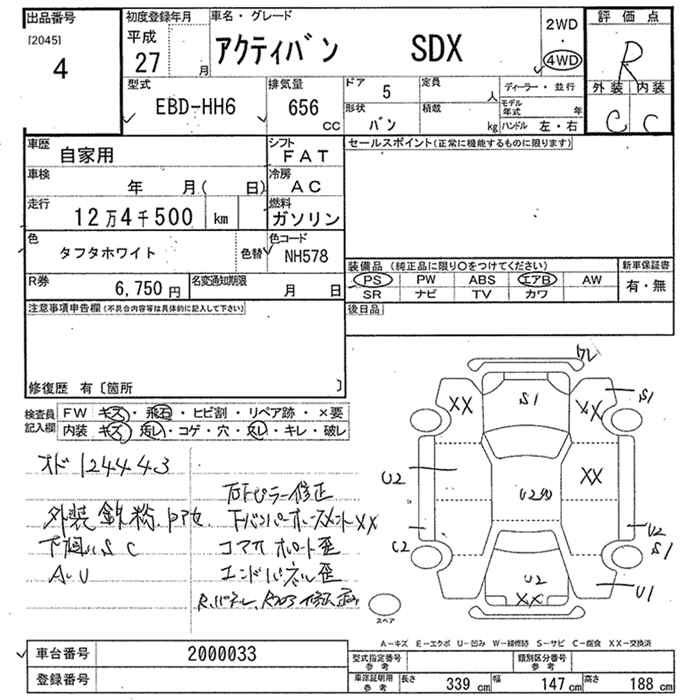 出品番号
[2045]
4
初度登録年月
平成
27 月
車名・グレード
アクティバン SDX
2WD
・
4WD
評価点
R
外装 内装
C C
型式
EBD-HH6
排気量
656
CC
ドア
5
定員
人
形状
バン
積載
kg
ディーラー・並行
モデル年式 年
ハンドル 左・右
車歴
自家用
シフト
FAT
車検
年 月( 日)
冷房
AC
走行
12万4千500 km
燃料
ガソリン
色
タフタホワイト
色替
色コード
NH578
R券
6,750円
名変通知期限
月 日
セールスポイント(正常に機能するものに限ります)
装備品(純正品に限り○をつけてください)
新車保証書
PS PW ABS エアB AW
有・無
SR ナビ TV カワ
後日品
注意事項申告欄(不具合内容等は具体的に記入して下さい)
修復歴 有〔箇所 〕
検査員記入欄
FW キズ・飛石・ヒビ割・リペア跡・×要
内装 キズ・汚レ・コゲ・穴・スレ・キレ・破レ
オド 124443
外装 鉄粉
下廻り S C
A.U
ピラー修正
XX
コマオ
エンドパネル歪
ワレ
XX
S1
XX
S1
U2
XX
U2
C2
U2
S1
U2
XX
U1
スペア
A-キズ E-エクボ U-凹み W-補修跡 S-サビ C-腐食 XX-交換済
車台番号
2000033
登録番号
型式指定番号
参考
類別区分番号
参考
車庫証明用
参考
長さ 339 cm 幅 147 cm 高さ 188 cm